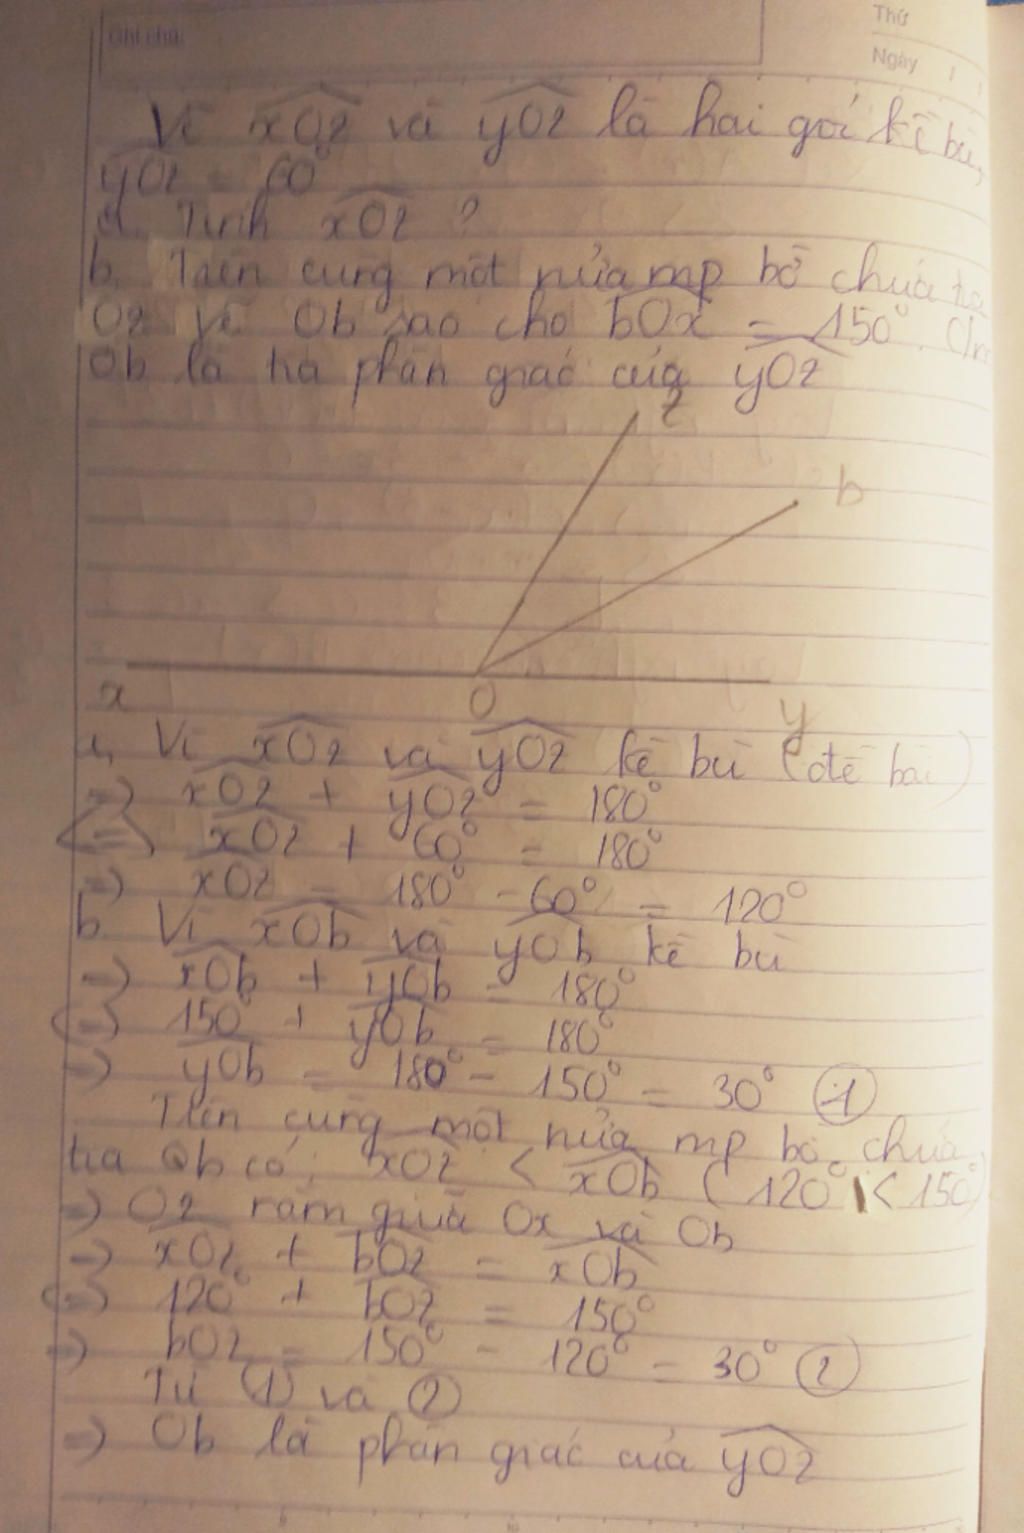 Ghi chú:
Thứ
Ngày
Vẽ xOz và yOz là hai góc kề bù,
yOz = 60°
a. Tính xOz ?
b. Trên cùng một nửa mp bờ chứa tia
Oz vẽ Ob sao cho bOx = 150°. C/m
Ob là tia phân giác của yOz
z
b
x
O
y
a, Vì xOz và yOz kề bù (đề bài)
=> xOz + yOz = 180°
<=> xOz + 60° = 180°
=> xOz = 180° - 60° = 120°
b. Vì xOb và yOb kề bù
=> xOb + yOb = 180°
<=> 150° + yOb = 180°
=> yOb = 180° - 150° = 30° (1)
Trên cùng một nửa mp bờ chứa
tia Ob có: xOz < xOb (120° < 150°)
=> Oz nằm giữa Ox và Ob
=> xOz + bOz = xOb
<=> 120° + bOz = 150°
=> bOz = 150° - 120° = 30° (2)
Từ (1) và (2)
=> Ob là phân giác của yOz